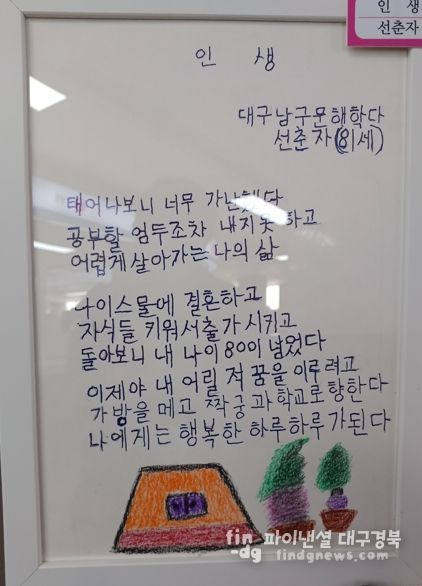 인 생
선춘자
인 생
대구남구문해학다
선춘자(81세)
태어나보니 너무 가난했다
공부할 엄두조차 내지못 하고
어렵게살아가는 나의 삶
나이스물에 결혼하고
자식들 키워서출가시키고
돌아보니 내 나이80이 넘었다
이제야 내 어릴 적 꿈을 이루려고
가방을 메고 짝궁과학교로향한다
나에게는 행복한 하루하루가된다
fin 파이낸셜 대구경북
-dg findgnews.com